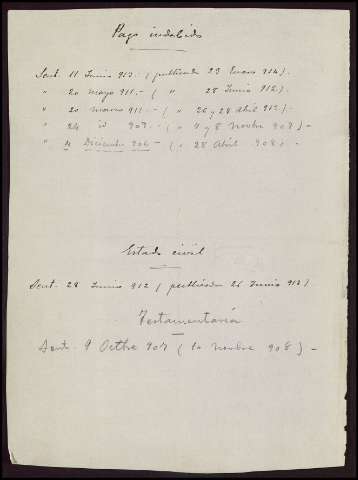 Pago indebido
Sent. 11 Junio 913. (publicada 23 Enero 914).
" 20 mayo 911.- ( " 28 Junio 912).
" 20 marzo 911.- ( " 26 y 28 Abril 912).-
" 24 id 909.- ( " 4 y 8 Novbre 909).-
" 4 Diciembre 906- ( " 28 Abril 908).-
Estado civil
Sent. 28 Junio 912 (publicada 26 Junio 913)
Testamentaría
Sent. 9 Octbre 907 (10 Novbre 908).-